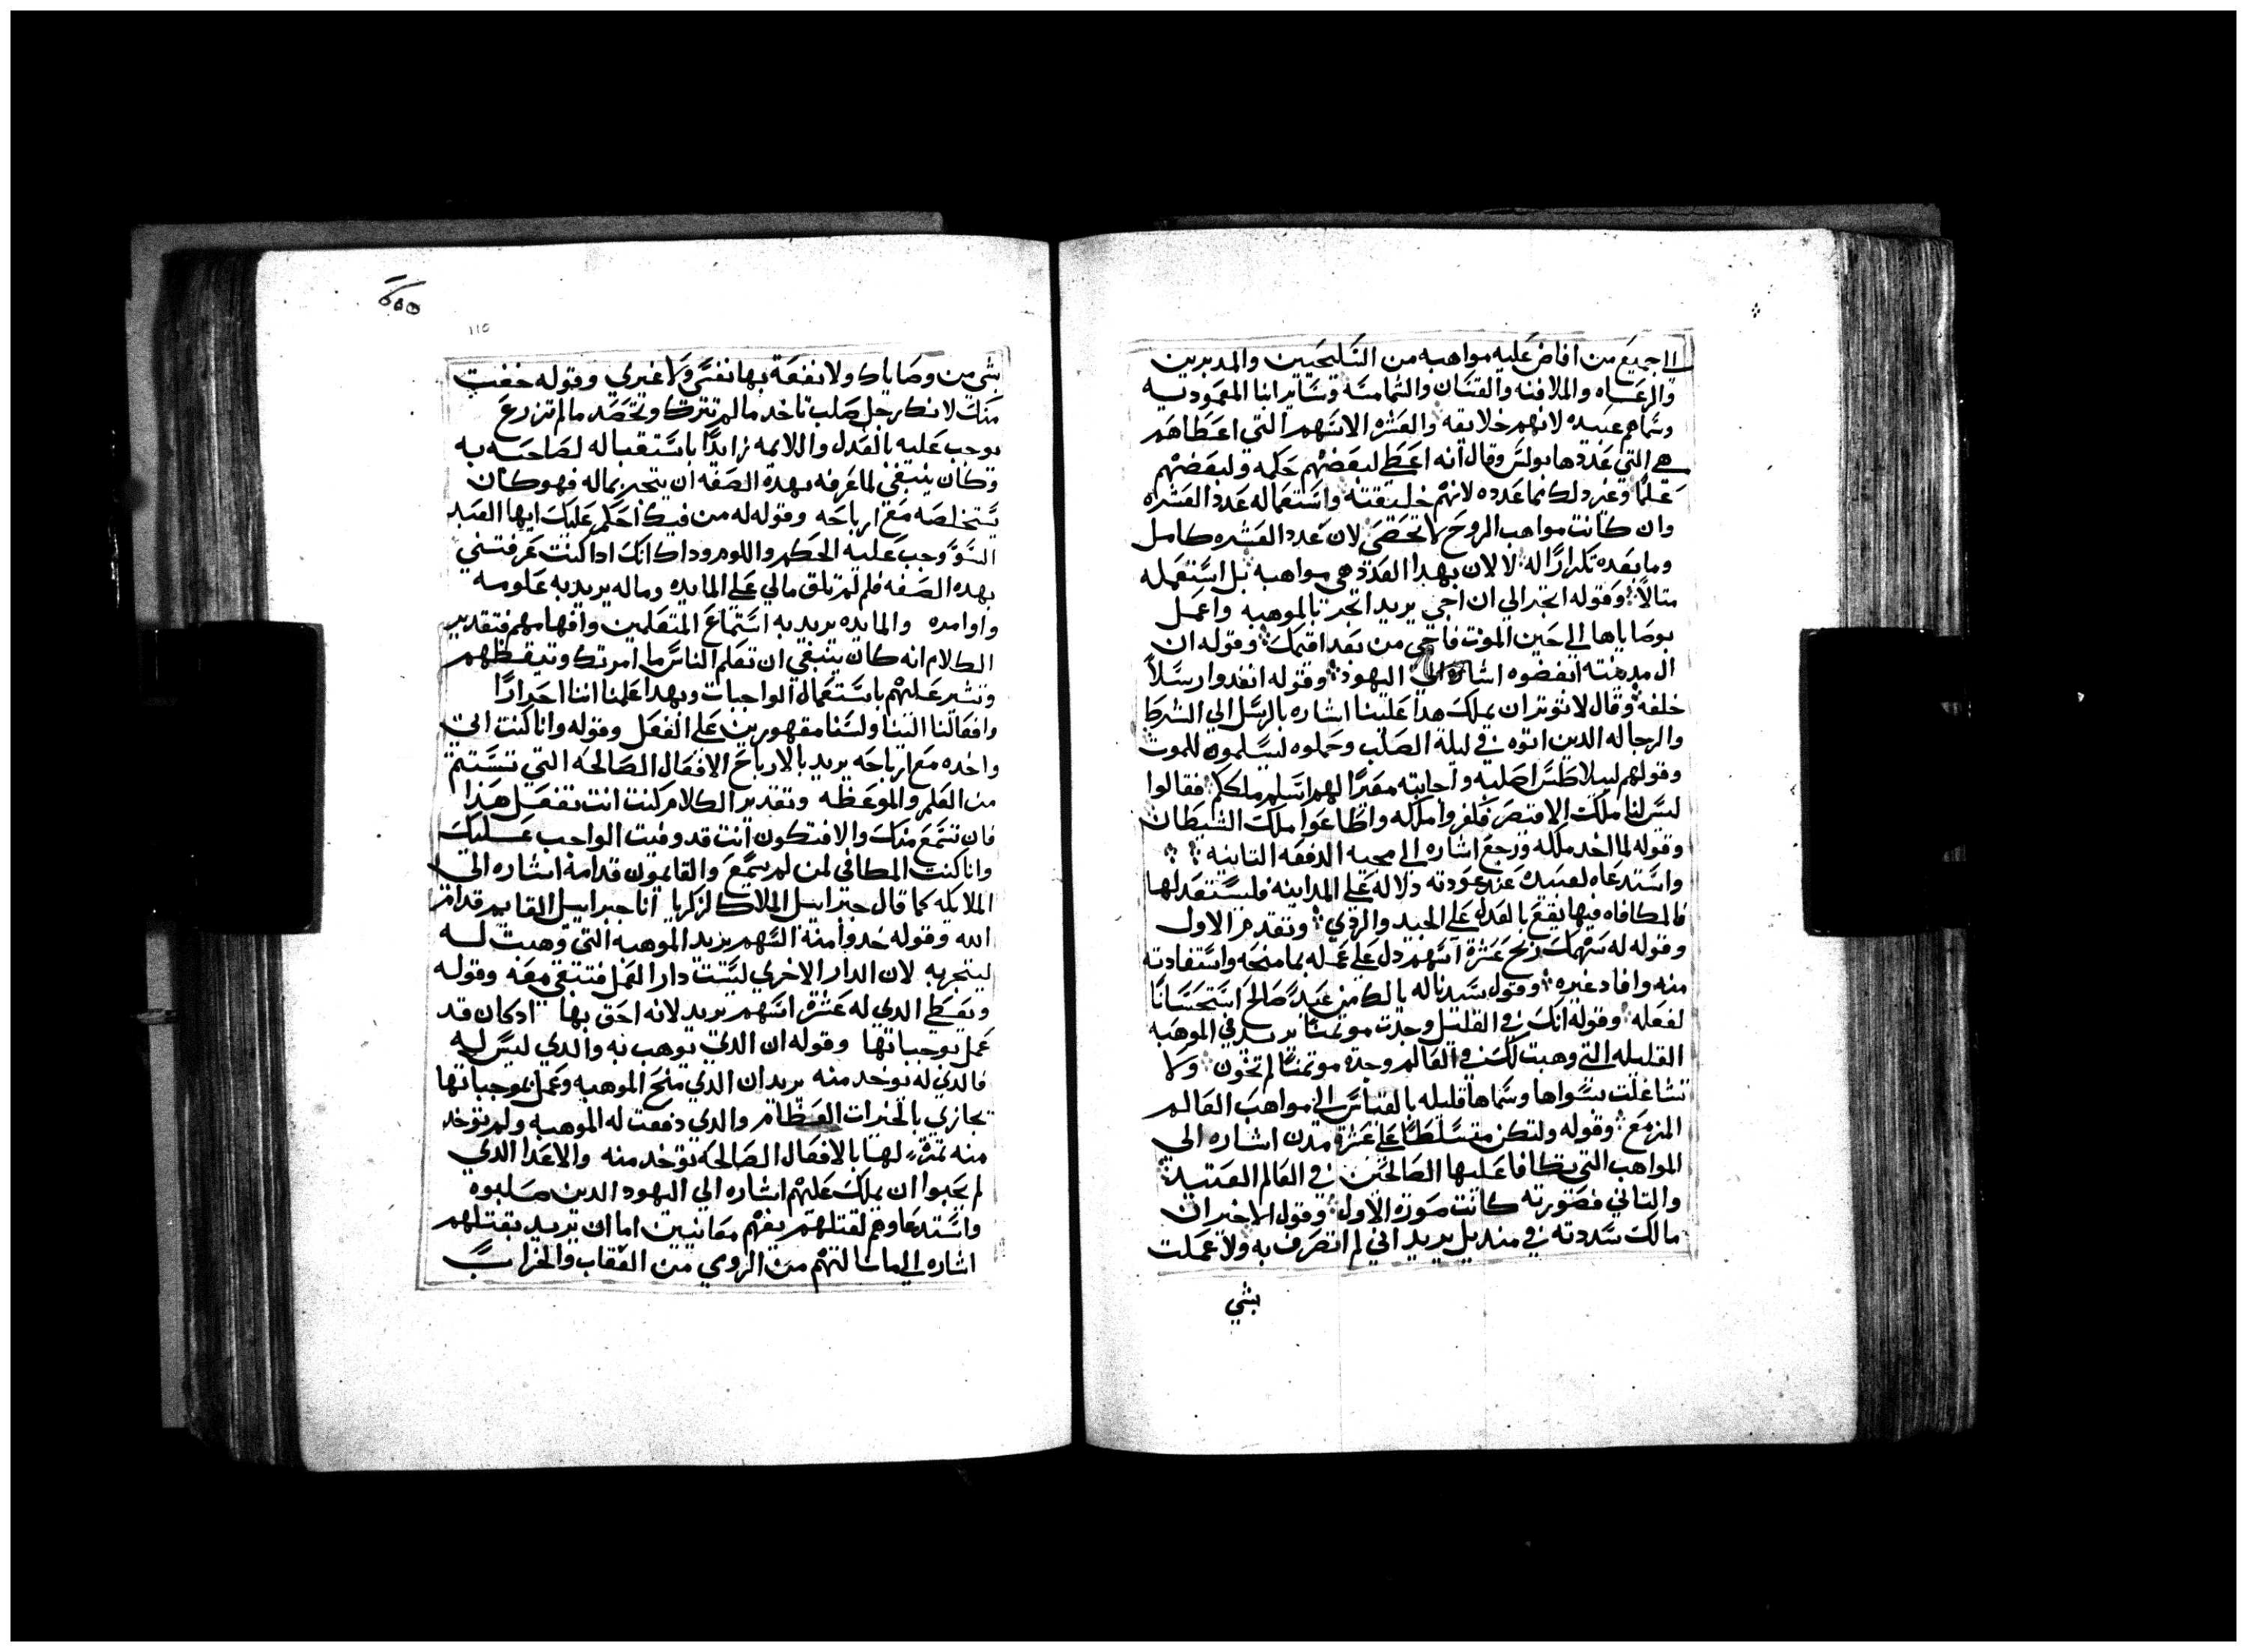 الا جميع من افاض عليه مواهبه من السليحيين والمدبرين
والرعاه والملافنه والقسان والشمامسه وساير ابنا المعموديه
وسماهم عبيده لانهم خلايقه والعشره الاسهم التي اعطاهم
هي التي عددها بولس وقال انه اعطي لبعضهم حكمه ولبعضهم
علما وغير دلك مما عدده لانهم خليقته واستعماله عدد العشره
وان كانت مواهب الروح لا تحصي لان عدد العشره كامل
وما بعده تكرارًا له لا لان بهدا العدد هي مواهبه بل استعمله
متالاً وقوله اتجر الي ان اجي يريد اتجر بالموهبه واعمل
بوصاياها الي حين الموت فاجي من بعد اقيمك وقوله ان
ال مدينته ابغضوه اشاره الي اليهود وقوله انفدوا رسلاً
خلفه وقال لا نوتر ان يملك هدا علينا اشاره بالرسل الي الشرط
والرجاله الدين اتوه في ليلة الصلب وحملوه ليسلموه للموت
وقولهم لبيلاطس اصلبه واجابته مقرًا لهم اسلم ملككم فقالوا
ليس لنا ملك الا قيصر فكفروا ملكه واطاعوا ملك الشيطان
وقوله لما اخد ملكه ورجع اشاره الي مجيه الدفعه التانيه
واستدعاه لعبيده عند عودته دلاله علي المداينه فليستعد لها
فالمكافاه فيها تقع بالعدل علي الجيد والردي وتقدم الاول
وقوله له سهمك ربح عشرة اسهم دل علي عمله بما منحه واستفادته
منه وافاد غيره وقول سيدنا له يا لك من عبدً صالح استحسانًا
لفعله وقوله انك في القليل وجدت موتمنًا يريد في الموهبه
القليله التي وهبت لك في العالم وجدت موتمنًا لم تخون ولا
تشاغلت بسواها وسماها قليله بالقياس الي مواهب العالم
المزمع وقوله ولتكن متسلطًا علي عشرة مدن اشاره الي
المواهب التي يكافا عليها الصالحين في العالم العتيد
والتاني فصورته كانت صورة الاول وقول الاخير ان
مالك شددته في منديل يريد اني لم اتصرف به ولا عملت
بشي
١١٥
بشي من وصاياك ولا نفعة بها نفسي ولا غيري وقوله خفت
منك لانك رجل صلب تاخد مالم تترك وتحصد مالم تزرع
يوجب عليه بالعدل واللايمه زايدًا باستقباله لصاحبه به
وكان ينبغي لما عرفه بهده الصفه ان يتجر بماله فهو كان
يستخلصه مع ارباحه وقوله له من فيك احكم عليك ايها العبد
السوً وجب عليه الحكم واللوم وداك انك ادا كنت عرفتني
بهده الصفه فلم لم تلق مالي علي المايده وماله يريد به علومه
واوامره والمايده يريد به استماع المتعلمين وافهامهم فتقدير
الكلام انه كان ينبغي ان تعلم الناس ما امرتك وتيقظهم
وتشير عليهم باستعمال الواجبات وبهدا علمنا اننا احرارًا
وافعالنا الينا ولسنا مقهورين علي الفعل وقوله وانا كنت اتي
واخده مع ارباحه يريد بالارباح الافعال الصالحه التي تستتم
من العلم والموعظه وتقدير الكلام كنت انت تفعل هدا
فان تسمع منك والا فتكون انت قد وفيت الواجب عليك
وانا كنت المكافي لمن لم يسمع والقايمون قدامه اشاره الي
الملايكه كما قال جبراييل الملاك لزكريا انا جبراييل القايم قدام
الله وقوله خدوا منه السهم يريد الموهبه التي وهبت له
ليتجر به لان الدار الاخري ليست دار العمل فتبقي معه وقوله
وتعطي الدي له عشرة اسهم يريد لانه احق بها ادكان قد
عمل بوجباتها وقوله ان الدي يوهب به والدي ليس له
فالدي له يوخد منه يريد ان الدي منح الموهبه وعمل بموجباتها
يجازي بالخيرات العظام والدي دفعت له الموهبه ولم توخد
منه تمرة لها بالافعال الصالحه توخد منه والاعدا الدي
لم يحبوا ان يملك عليهم اشاره الي اليهود الدين صلبوه
واستدعاوهم لقتلهم يفهم معانيين اما ان يريد بقتلهم
اشاره الي ما سالتهم من الروي من العقاب والخراب